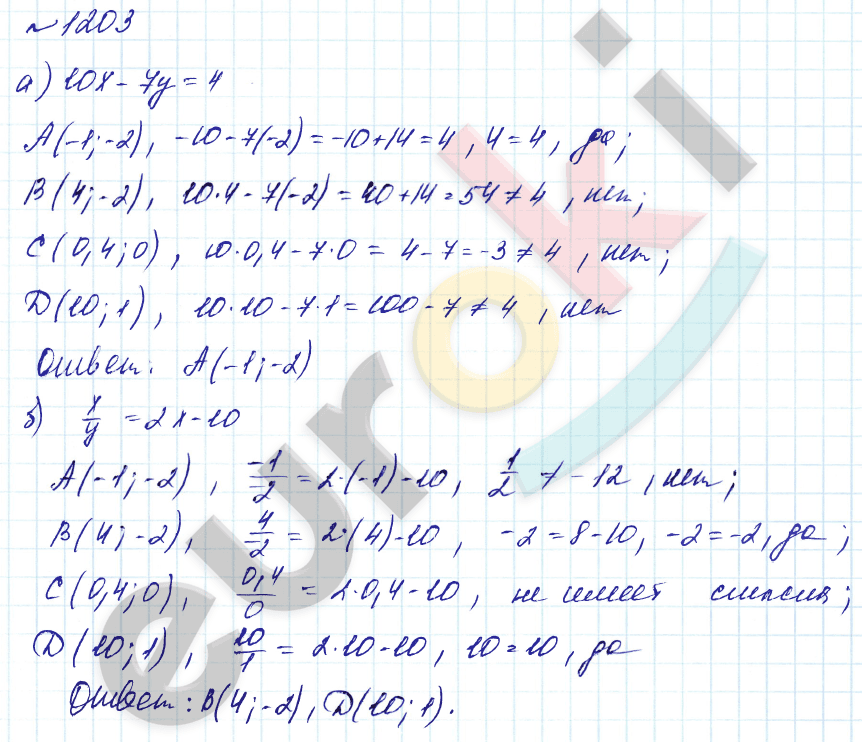 №1203
а) 10x - 7y = 4
A(-1; -2), -10 - 7(-2) = -10 + 14 = 4, 4 = 4, да;
B(4; -2), 10·4 - 7(-2) = 40 + 14 = 54 ≠ 4, нет;
C(0,4; 0), 10·0,4 - 7·0 = 4 - 7 = -3 ≠ 4, нет;
D(10; 1), 10·10 - 7·1 = 100 - 7 ≠ 4, нет
Ответ: A(-1; -2)
б) x/y = 2x - 10
A(-1; -2), -1/-2 = 2·(-1) - 10, 1/2 ≠ -12, нет;
B(4; -2), 4/-2 = 2·(4) - 10, -2 = 8 - 10, -2 = -2, да;
C(0,4; 0), 0,4/0 = 2·0,4 - 10, не имеет смысла;
D(10; 1), 10/1 = 2·10 - 10, 10 = 10, да
Ответ: B(4; -2), D(10; 1).
euroki